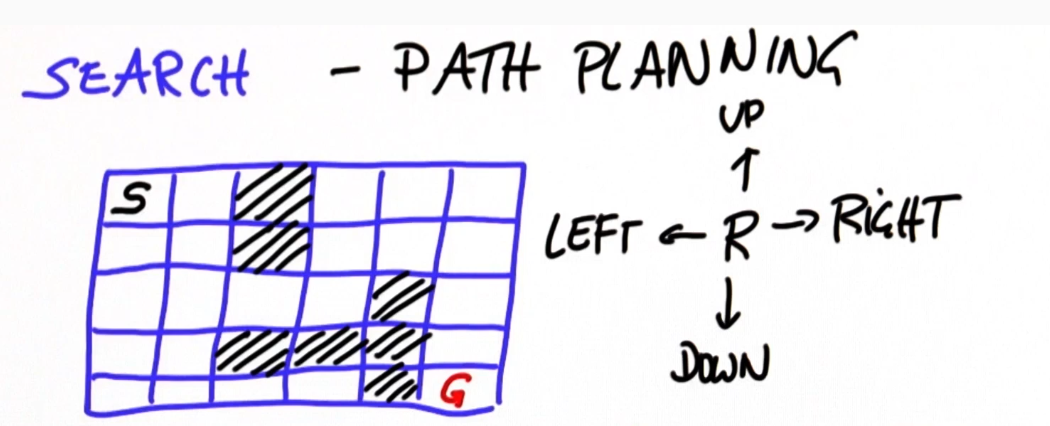 SEARCH - PATH PLANNING
UP
S
LEFT ← R → RIGHT
DOWN
G